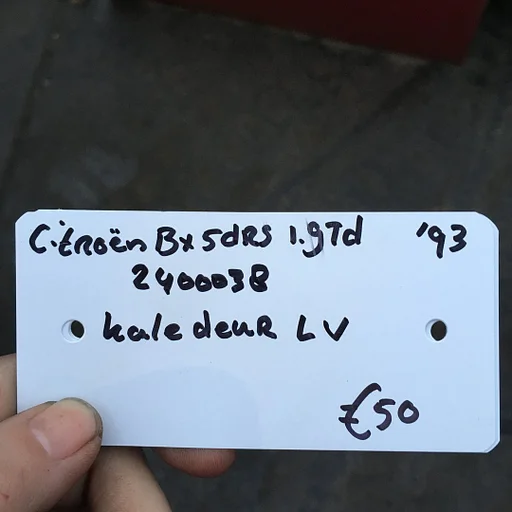 Citroën Bx 5dRS 1.9Td '93
2400038
kale deuR LV
€50